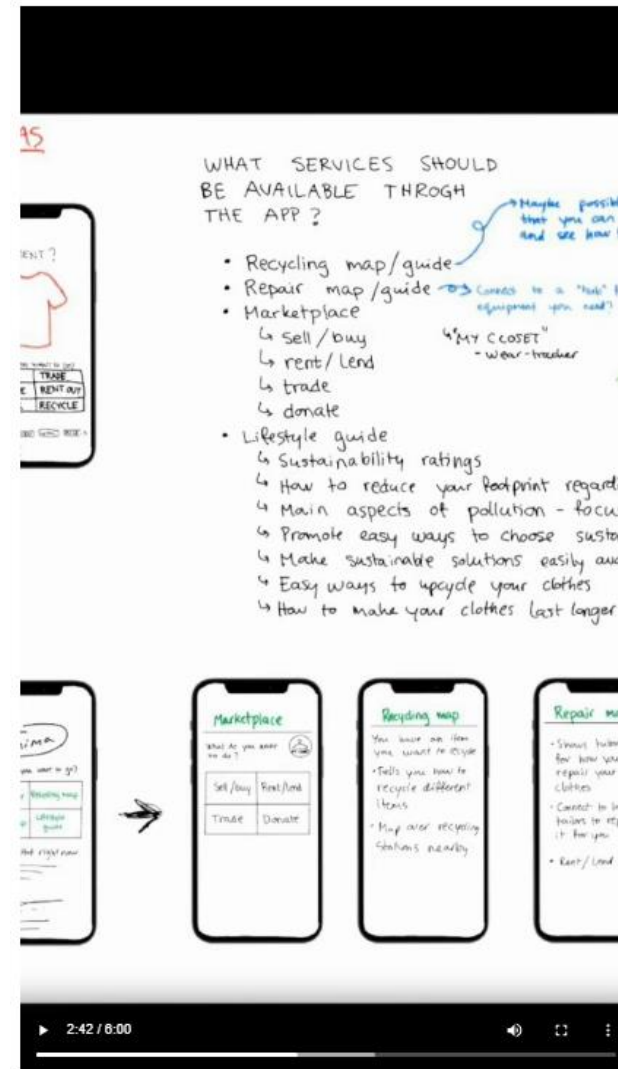 WHAT SERVICES SHOULD
BE AVAILABLE THROGH
THE APP?
Maybe possibl
that you can
and see how
• Recycling map/guide
• Repair map/guide
Connect to a "hub"
equipment you need?
• Marketplace
↳ Sell/buy
↳ rent/Lend
↳ trade
↳ donate
↳ "MY CLOSET"
- wear-tracker
• Lifestyle guide
↳ Sustainability ratings
↳ How to reduce your footprint regardi
↳ Main aspects of pollution - focu
↳ Promote easy ways to choose susta
↳ Make sustainable solutions easily
↳ Easy ways to upcycle your clothes
↳ How to make your clothes last longer
TRADE
RENT OUT
RECYCLE
you want to go?
Recycling map
Lifestyle
guide
right now
Marketplace
What do you want
to do?
Sell/buy
Rent/lend
Trade
Donate
Recycling map
You have an item
you want to recycle
• Tells you how to
recycle different
items
• Map over recycling
stations nearby
Repair
• Shows
for how you
repair your
clothes
• Connect to
tailors to
it for you
• Rent/Lend
2:42 / 6:00